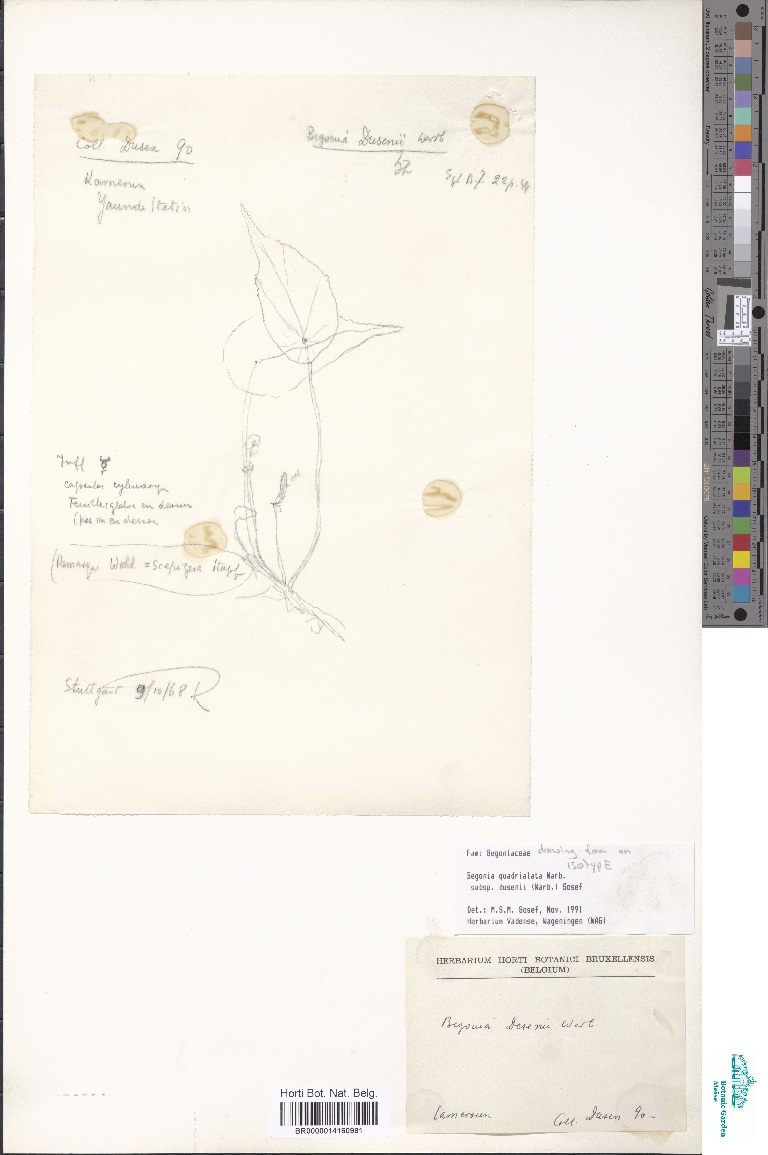 Coll. Dusen 90
Begonia Dusenii Warb
Kamerun
Yaunde Station
Infl
capsules
Feuilles glabre en dessus
Wohl = Scapigera Stapf
Stuttgart 9/10/68 R
Fam: Begoniaceae drawing from an
isotypE
Begonia quadrialata Warb.
subsp. dusenii (Warb.) Sosef
Det.: M.S.M. Sosef, Nov. 1991
Herbarium Vadense, Wageningen (WAG)
HERBARIUM HORTI BOTANICI BRUXELLENSIS
(BELGIUM)
Begonia Dusenii Warb
Cameroun
Coll. Dusen 90
Horti Bot. Nat. Belg.
BR0000014160981
Botanic Garden
Meise